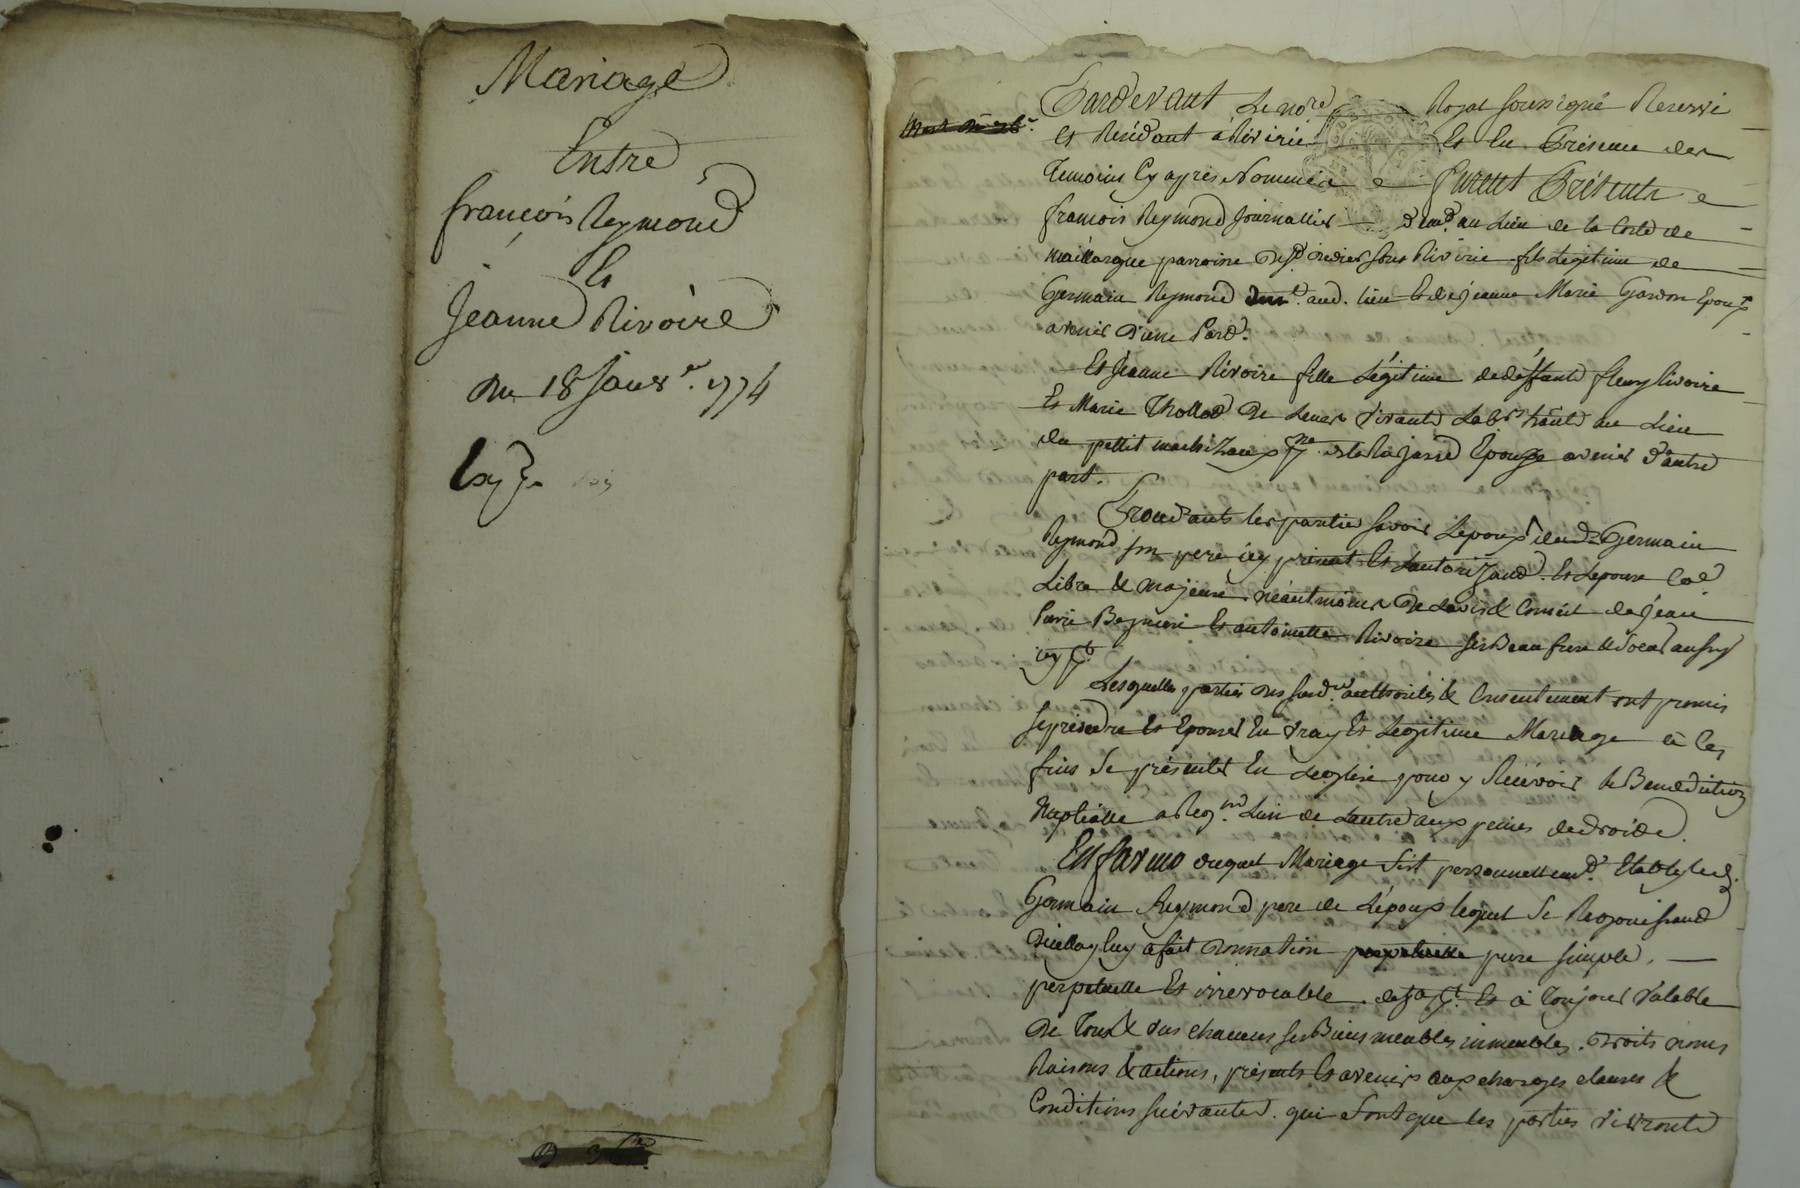 Mariage
Entre
françois Reymond
Et
Jeanne Rivoire
Du 18 Janv.er 1774
Pardevant Le no.re Royal soussigné Reservé
Et Residant à Riverie Et En Présence des
Temoins Cy après Nommés furent Présents
françois Reymond Journallier dem.t au Lieu de la Coste de
parroisse de S.t Riverie fils Legitime de
Germain Reymond aud. lieu & de jeanne Marie Epoux
avenir D'une Part.
Et Jeanne Rivoire fille Légitime de deffunts fleury Rivoire
Et Marie Thollot De Leurs vivants Lab.rs au Lieu
du petit p.sse de la jasse Epouse avenir d'autre
part.
les parties savoir L'epoux dud. Germain
Reymond son pere icy présent Et L'autorizand. Et Lepouse Comme
Libre & majeure. néantmoins De Lavis & Conseil de jean
Et antoinette Rivoire ses Beau frere & soeur aussy
icy p.ts
Lesquelles parties des susd. authorités & Consentement ont promis
se prendre Et Epouser En vray Et Legitime Mariage à Ces
fins Se présenter En Leglise pour y Recevoir la Benediction
Nuptialle a Req.on Lun de Lautre aux peines de droit.
En faveur duquel Mariage s'est personnellem.t Etably led.
Germain Reymond pere de L'époux lequel Se Rejouissand
D'icelluy luy a fait Donnation pure simple,
perpetuelle Et irrevocable. Et à Toujours valable
De Tous & uns chacuns ses Biens meubles immeubles. Droits noms
Raisons & actions, présents Et avenirs aux charges clauses &
Conditions suivantes. qui sont que les parties vivronts